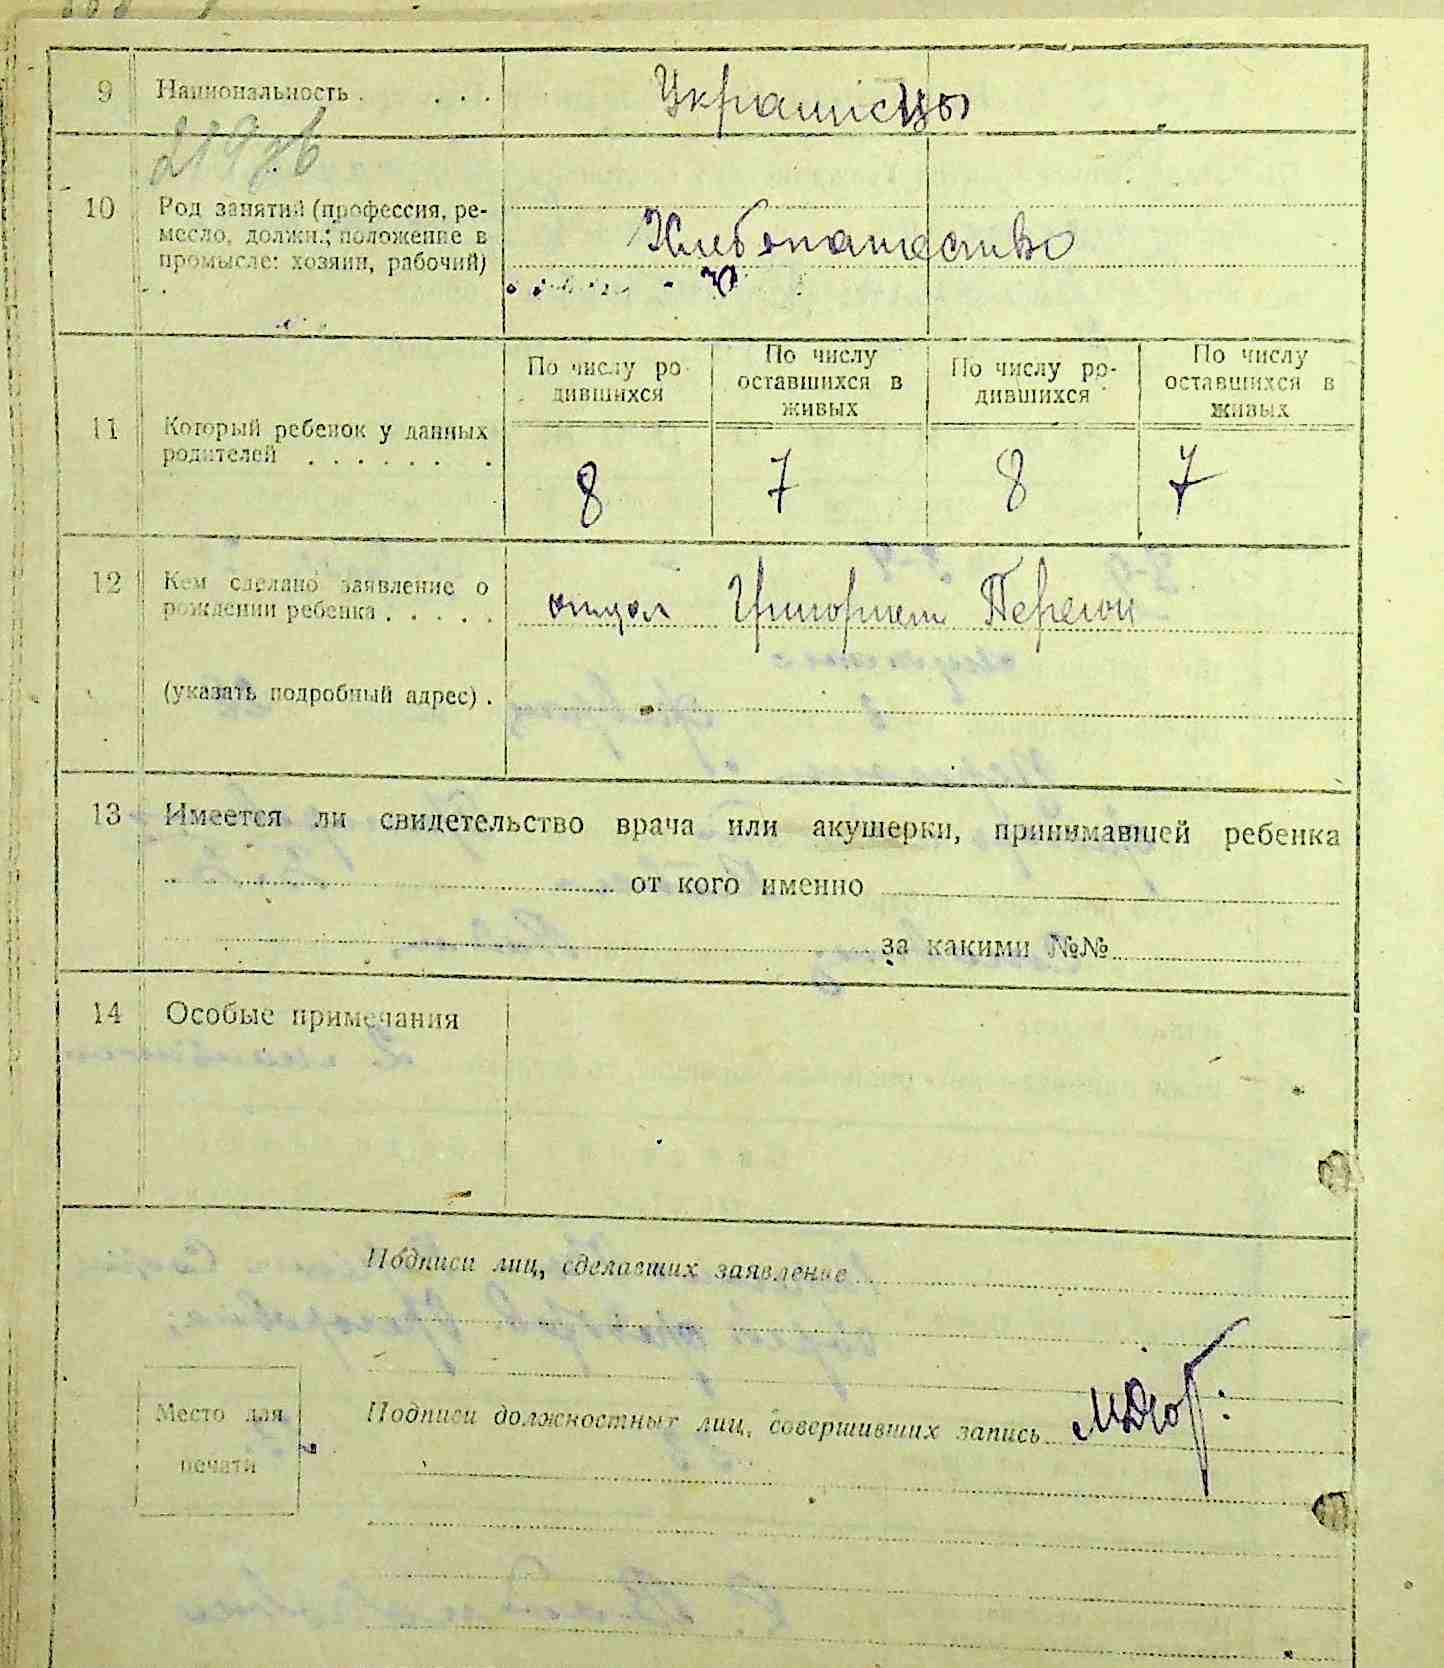 9 Национальность . . . . Украинсцы
10 Род занятий (профессия, ре-
месло, должн.; положение в
промысле: хозяин, рабочий)
Хлебопашество
По числу ро-
дившихся
По числу
оставшихся в
живых
По числу ро-
дившихся
По числу
оставшихся в
живых
11 Который ребенок у данных
родителей . . . . . . .
8 7 8 7
12 Кем сделано заявление о
рождении ребенка . . . . .
отцом Григорием
(указать подробный адрес) .
13 Имеется ли свидетельство врача или акушерки, принимавшей ребенка
от кого именно
за какими №№
14 Особые примечания
Подписи лиц, сделавших заявление
Место для
печати
Подписи должностных лиц, совершивших запись